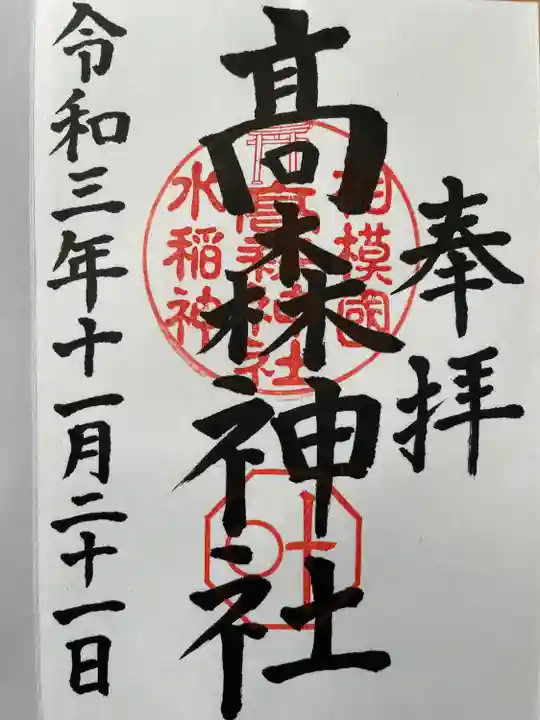 奉拝
相模國
高森神社
水稲神
叶
髙森神社
令和三年十一月二十一日